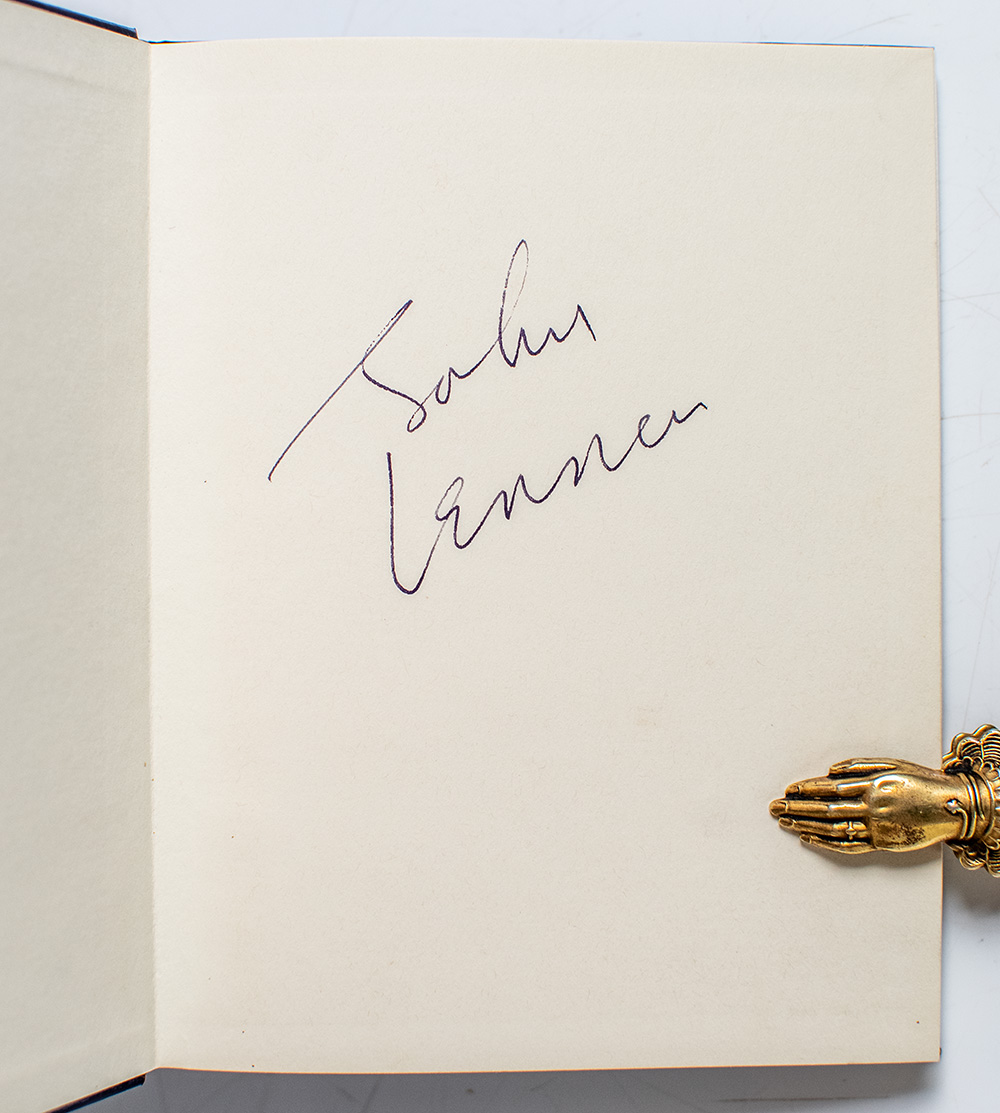 John
Lennon